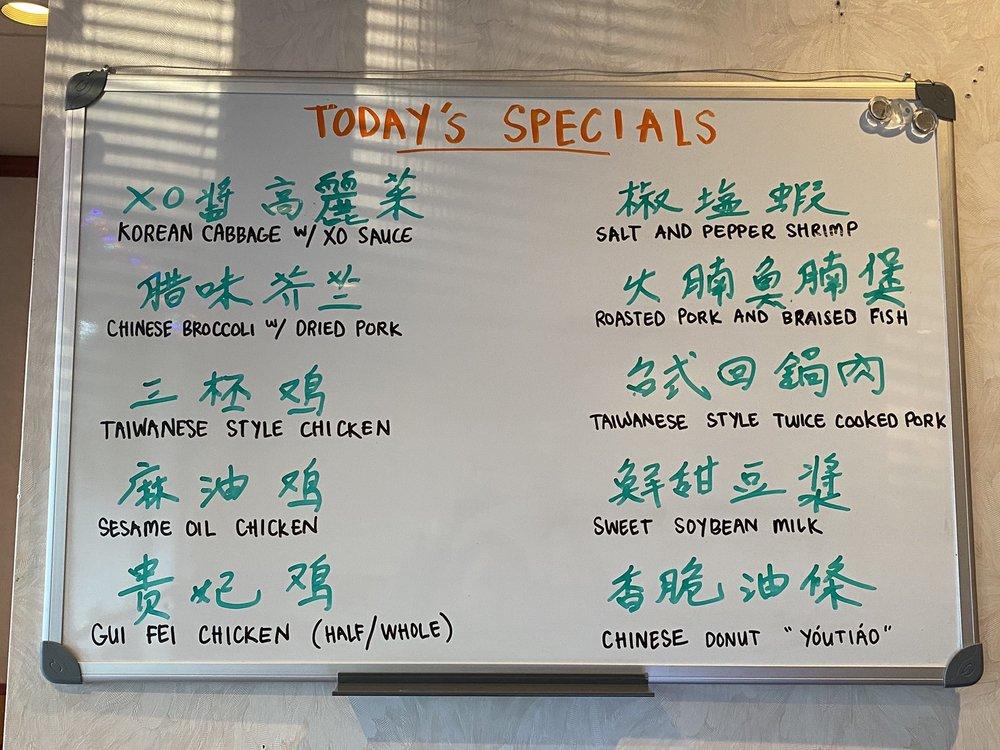 TODAY'S SPECIALS
XO醬 高麗菜
KOREAN CABBAGE W/ XO SAUCE
腊味芥兰
CHINESE BROCCOLI W/ DRIED PORK
三杯鸡
TAIWANESE STYLE CHICKEN
麻油鸡
SESAME OIL CHICKEN
贵妃鸡
GUI FEI CHICKEN (HALF/WHOLE)
椒塩蝦
SALT AND PEPPER SHRIMP
火腩魚腩煲
ROASTED PORK AND BRAISED FISH
台式回鍋肉
TAIWANESE STYLE TWICE COOKED PORK
鮮甜豆漿
SWEET SOYBEAN MILK
香脆油條
CHINESE DONUT "YÓUTIÁO"